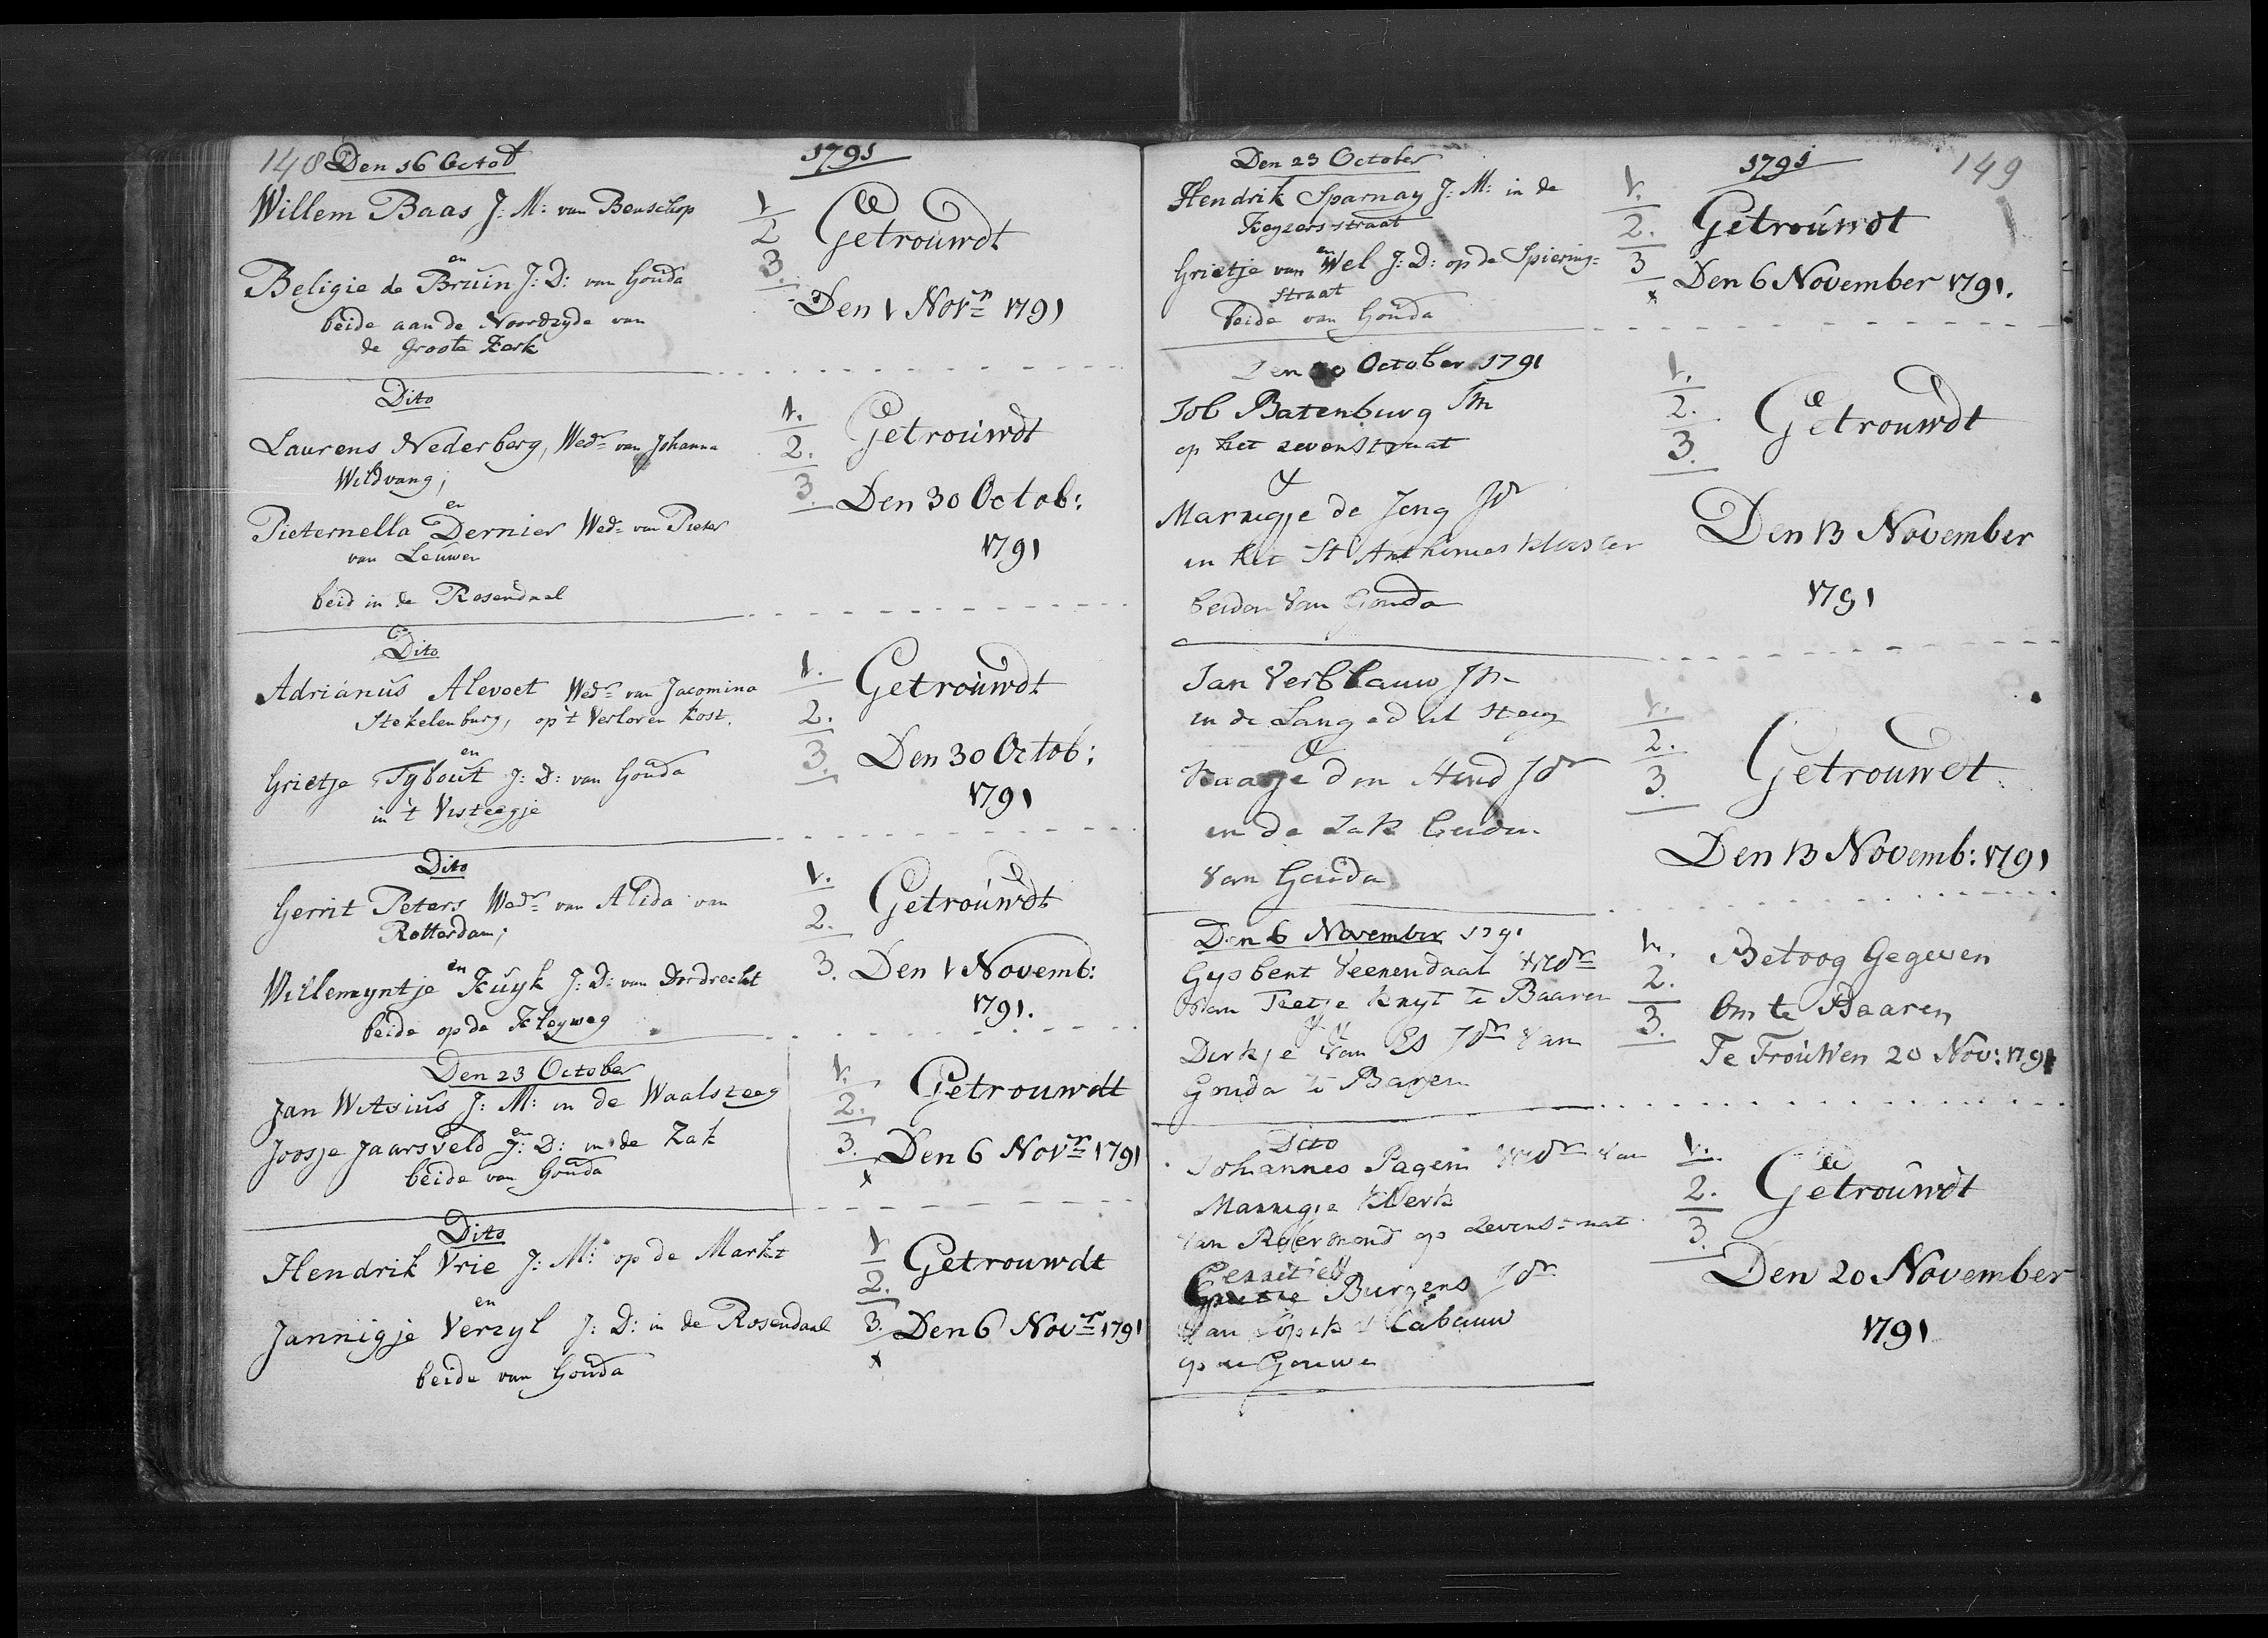 148 Den 16 Octob 1791
Willem Baas J: M: van Benschop
en
Beligie de Bruin J: D: van Gouda
beide aan de Noordzyde van
de Groote Kerk
1
2
3.
Getrouwdt
Den 1 Novr 1791
Dito
Laurens Nederberg, Wedr van Johanna
Wildvang;
en
Pieternella Dernier Wed= van Pieter
van Leuwen
beid in de Rosendaal
1.
2.
3.
Getrouwdt
Den 30 Octob:
1791
Dito
Adrianus Alevoet Wedr van Jacomina
Stekelenburg, op 't Verloren kost.
en
Grietje Tybout J: D: van Gouda
in 't Visteegje
1.
2.
3.
Getrouwdt
Den 30 Octob:
1791
Dito
Gerrit Peters Wedr van Alida van
Rotterdam;
en
Willemyntje Kuyk J: D: van Dordrecht
beide op de Kleyweg
1.
2.
3.
Getrouwdt
Den 1 Novemb:
1791.
Den 23 October
Jan Witsius J: M: in de Waalsteeg
en
Joosje Jaarsveld J: D: in de Zak
beide van Gouda
1.
2.
3.
x
Getrouwdt
Den 6 Novr 1791
Dito
Hendrik Vrie J: M: op de Markt
en
Jannigje Verzyl J: D: in de Rosendaal
beide van Gouda
1
2.
3.
x
Getrouwdt
Den 6 Novr 1791
Den 23 October 1791 149
Hendrik Sparnay J: M: in de
Keyzersstraat
en
Grietje van Wel J: D: op de Spiering=
straat
beide van Gouda
1.
2.
3
x
Getrouwdt
Den 6 November 1791.
Den 30 October 1791
Job Batenburg Jm
op het zevenstraat
&
Marrigje de Jong Jdr
in het St Anthonies klooster
beiden Van Gouda
1.
2.
3.
Getrouwdt
Den 13 November
1791
Jan Verblauw Jm
in de Lang
&
Kaatje den Jdr
in de Zak beiden
Van Gouda
1.
2.
3.
Getrouwdt.
Den 13 Novemb: 1791
Den 6 November 1791
Gysbert Veenendaal Wedr
Van Teetje Knyt te Baaren
&
Dirkje Van Es Jdr Van
Gouda te Baren
1.
2.
3.
Betoog Gegeven
Om te Baaren
Te Trouwen 20 Nov: 1791
Dito
Johannes Pagein Wedr Van
Marrigje Klerk
Van Roermond op Zevenstraat
Gerritje
Burgens Jdr
Van Lopik & Cabauw
op de Gouwe
1.
2.
3.
Getrouwdt
Den 20 November
1791